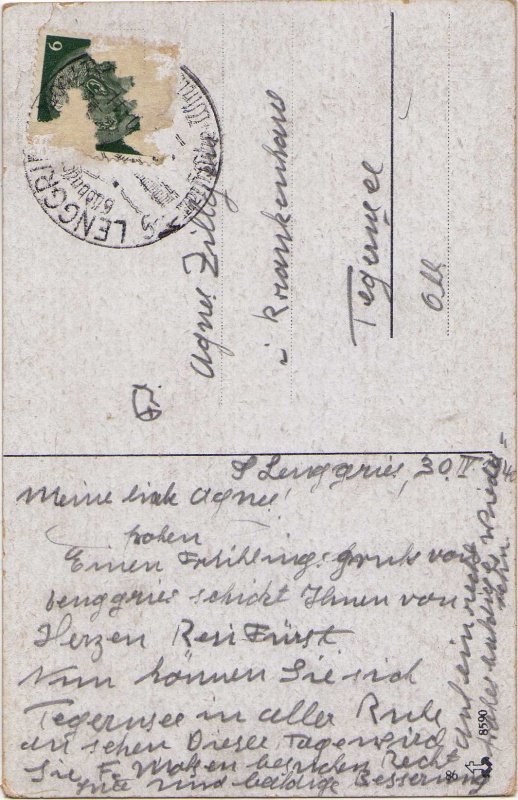 6
LENGGRIES
Agnes Zilly
Krankenhaus
Tegernsee
Obb
Lenggries, 30. IV
Meine liebe Agnes!
frohen
Einen Frühlingsgruß von
Lenggries schickt Ihnen von
Herzen Resi Fürst
Nun können Sie sich
Tegernsee in aller Ruhe
an sehen Diese Tage wird
Sie F. besuchen Recht
gute und baldige Besserung
auf ein recht
baldiges wieder=
sehn
8590